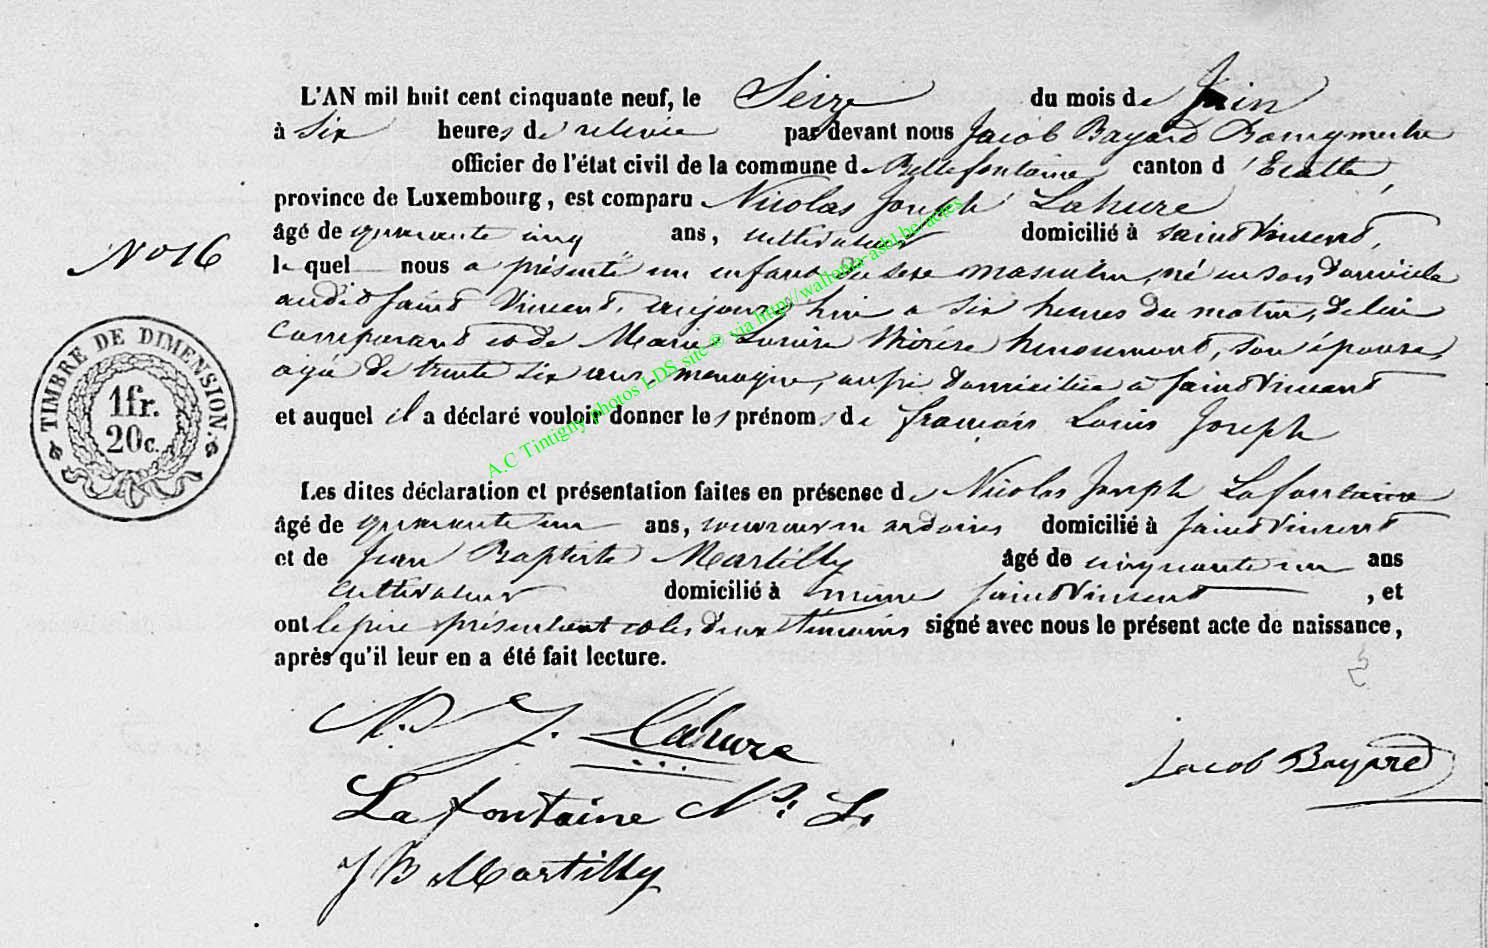 L'AN mil huit cent cinquante neuf, le Seize du mois de Juin
à Six heures de relevée par devant nous Jacob Bayard Bourgmestre
officier de l'état civil de la commune de Bellefontaine canton d'Etalle,
province de Luxembourg, est comparu Nicolas Joseph Lahure
âgé de quarante cinq ans, cultivateur domicilié à Saint Vincent,
N° 16
lequel nous a présenté un enfant du sexe masculin, né en son domicile
audit Saint Vincent, aujourd'hui à six heures du matin, de lui
comparant et de Marie Thérèse Henoumont, son épouse,
agée de trente six ans, menagère, aussi domiciliée à Saint Vincent
et auquel il a déclaré vouloir donner les prénoms de françois Louis Joseph
TIMBRE DE DIMENSION.
1fr.
20c.
Les dites déclaration et présentation faites en présence de Nicolas Joseph Lafontaine
âgé de quarante un ans, domicilié à Saint Vincent
et de Jean Baptiste Martilly âgé de cinquante un ans
cultivateur domicilié à même Saint Vincent, et
ont le père présentant et les deux témoins signé avec nous le présent acte de naissance,
après qu'il leur en a été fait lecture.
N. J. Lahure
Jacob Bayard
Lafontaine N. L.
J B Martilly
A.C Tintigny photos LDS site © via http://wallonia-asbl.be/actes